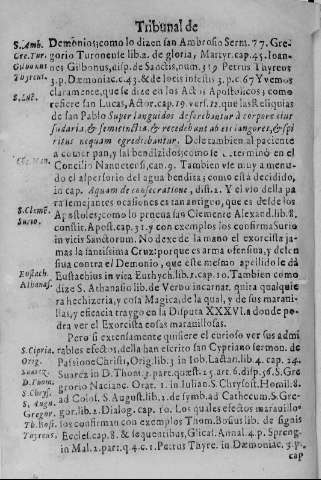 Tribunal de
S. Amb. Demonios; como lo dizen san Ambrosio Serm. 77. Gre-
Gre. Tur. gorio Turonense lib. 2. de gloria, Martyr. cap. 45. Ioan-
Gibonus nes Gibonus, disp. de Sanctis, num. 319 Petrus Thyreus
Thyreus. 3. p. Dæmoniac. c. 43. & de locis infestis 3. p. c. 67 Y vemos
claramente, que se dize en los Actos Apostolicos; como
S. Luc. refiere san Lucas, Actor. cap. 19. vers. 12. que las Reliquias
de san Pablo Super languidos deferebantur à corpore eius
sudaria, & semicinctia, & recedebant ab eis languores, & spi
ritus nequam egrediebantur. Dele tambien al paciente
à comer pan, y sal bendizidos; como se determinò en el
Concilio Nanetensi, can. 9. Tambien vse muy à menu-
do el aspersorio del agua bendita; como està decidido,
in cap. Aquam de consecratione, dist. 3. Y el vso della pa
ra semejantes ocasiones es tan antiguo, que es desde los
S. Cleme. Apostoles; como lo prueua san Clemente Alexand. lib. 8.
Surio. constit. Apost. cap. 31. y con exemplos los confirma Surio
in vitis Sanctorum. No dexe de la mano el exorcista ja-
mas la santissima Cruz: porque es arma ofensiua, y defen
siua contra el Demonio, que este mismo apellido le dà
Eustach. Eustachius in vita Euthych. lib. 1. cap. 10. Tambien como
Athanas. dize S. Athanasio lib. de Verbo incarnat. quita qualquie
ra hechizeria, y cosa Magica, de la qual, y de sus maraui-
llas, y eficacia traygo en la Disputa XXXVI. a donde po
dra ver el Exorcista cosas marauillosas.
Pero si extensamente quisiere el curioso ver sus admi
S. Cipria. rables efectos, della han escrito san Cypriano sermon. de
Orig. Passione Christi, Orig. lib. 3. in Iob. Lactan. lib. 4. cap. 24.
Suarez. Suarez in D. Thom. 3. part. quæst. 25. art. 6. disp. 56. S. Gre
D. Thom. gorio Naciane. Orat. 1. in Iulian. S. Chrysost. Homil. 8.
S. Chrys. ad Colos. S. August. lib. 2. de symb. ad Cathecum. S. Gre
S. Augu. gor. lib. 2. Dialog. cap. 10. Los quales efectos marauillo-
Gregor. sos confirman con exemplos Thom. Bosius lib. de signis
Th. Bosi. Eccles. cap. 8. & sequentibus, Glicas. Annal. 4. p. Spreng.
Thyreus in Mal. 2. part. q. 4. c. 1. Petrus Thyre. in Dæmoniac. 3. p.
cap